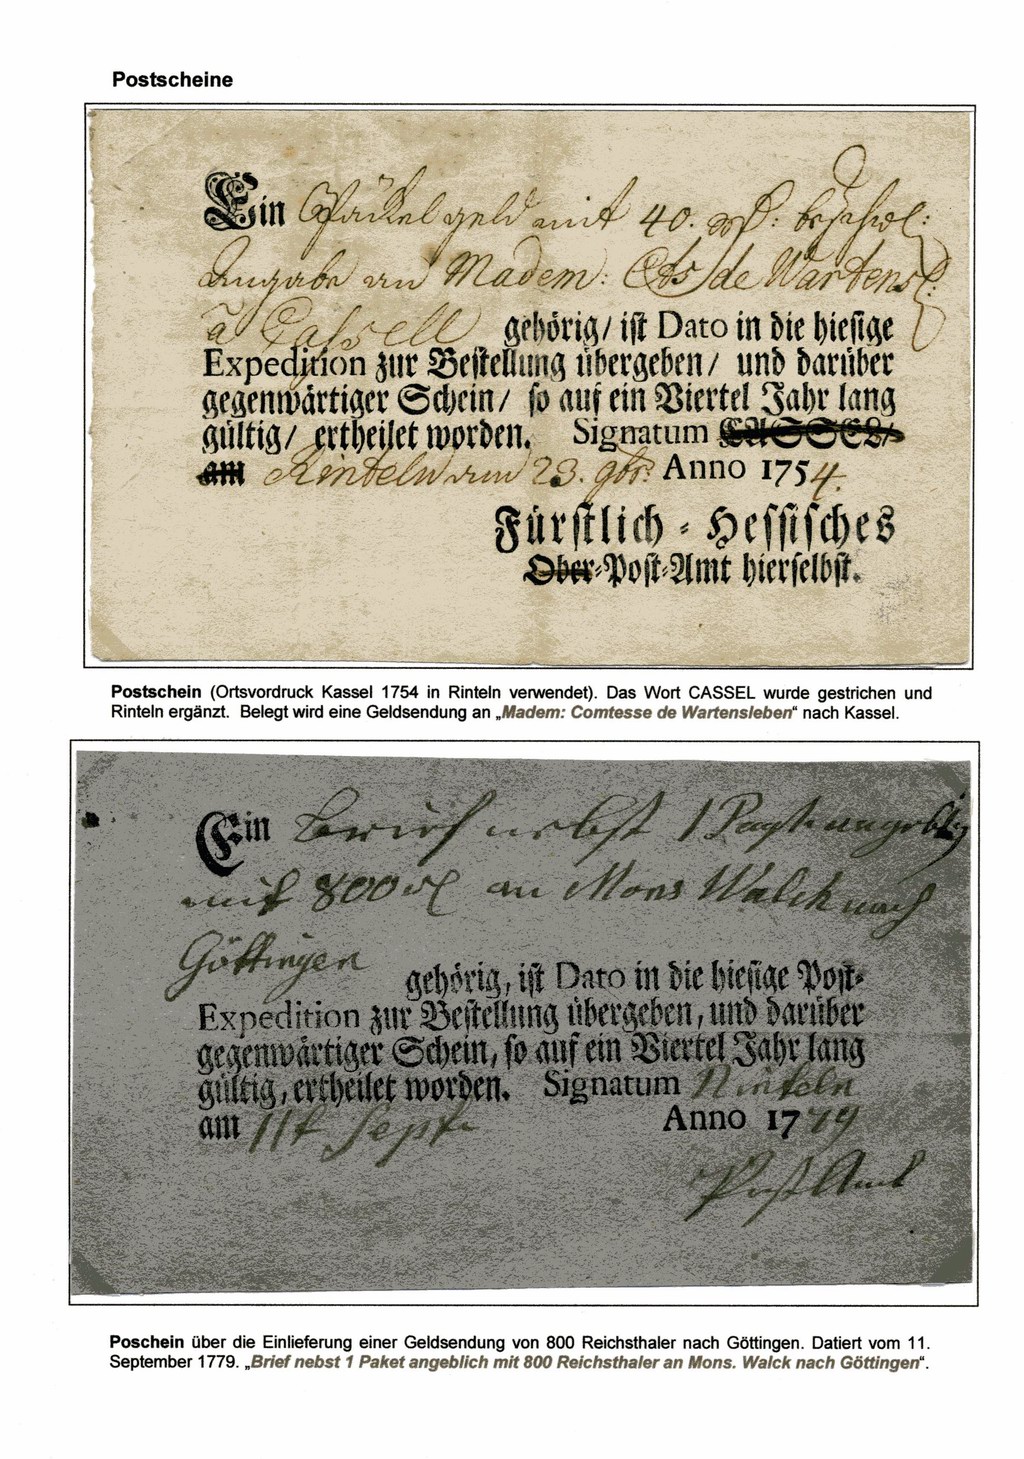 Postscheine
Ein Päckel geld mit 40. rth: beschwl:
Angabe an Madem: Cts de Wartensl:
à Cassell gehörig/ ist Dato in die hiesige
Expedition zur Bestellung übergeben/ und darüber
gegenwärtiger Schein/ so auf ein Viertel Jahr lang
gültig/ ertheilet worden. Signatum CASSEL/
am Rinteln den 23. 9br: Anno 1754.
Fürstlich-Hessisches
Ober-Post-Amt hierselbst.
Postschein (Ortsvordruck Kassel 1754 in Rinteln verwendet). Das Wort CASSEL wurde gestrichen und
Rinteln ergänzt. Belegt wird eine Geldsendung an „Madem: Comtesse de Wartensleben“ nach Kassel.
Ein Brief nebst 1 Paqt angeblig
mit 800 rl an Mons Walck nach
Göttingen gehörig, ist Dato in die hiesige Post-
Expedition zur Bestellung übergeben, und darüber
gegenwärtiger Schein, so auf ein Viertel Jahr lang
gültig, ertheilet worden. Signatum Rinteln
am 11t Sept. Anno 1779
Post Amt
Poschein über die Einlieferung einer Geldsendung von 800 Reichsthaler nach Göttingen. Datiert vom 11.
September 1779. „Brief nebst 1 Paket angeblich mit 800 Reichsthaler an Mons. Walck nach Göttingen“.